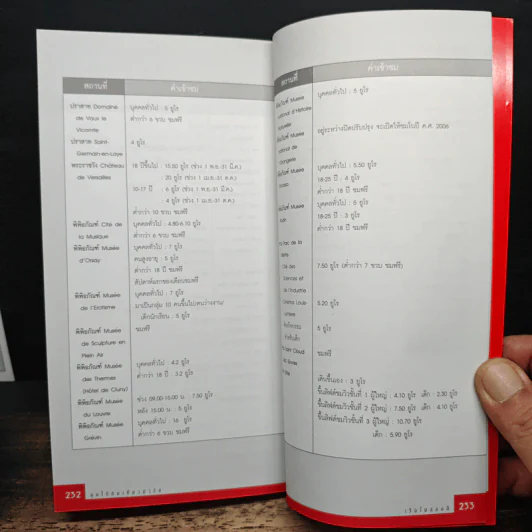 สถานที่ ค่าเข้าชม
ปราสาท Domaine บุคคลทั่วไป : 5 ยูโร
de Vaux le ต่ำกว่า 6 ขวบ ชมฟรี
Vicomte
ปราสาท Saint- 4 ยูโร
Germain-en-Laye
พระราชวัง Château 18 ปีขึ้นไป : 15.50 ยูโร (ช่วง 1 พ.ย-31 มี.ค.)
de Versailles : 20 ยูโร (ช่วง 1 เม.ย-31 ต.ค.)
10-17 ปี : 6 ยูโร (ช่วง 1 พ.ย-31 มี.ค.)
: 4 ยูโร (ช่วง 1 เม.ย-31 ต.ค.)
ต่ำกว่า 10 ขวบ ชมฟรี
พิพิธภัณฑ์ Cité de บุคคลทั่วไป : 4.80-6.10 ยูโร
la Musique ต่ำกว่า 6 ขวบ ชมฟรี
พิพิธภัณฑ์ Musée บุคคลทั่วไป : 7 ยูโร
d'Orsay คนสูงอายุ : 5 ยูโร
ต่ำกว่า 18 ปี ชมฟรี
สัปดาห์แรกของเดือนชมฟรี
พิพิธภัณฑ์ Musée บุคคลทั่วไป : 7 ยูโร
de l'Erotisme มาเป็นกลุ่ม 10 คนขึ้นไป
เด็กนักเรียน : 5 ยูโร
พิพิธภัณฑ์ Musée ชมฟรี
de Sculpture en
Plein Air
พิพิธภัณฑ์ Musée บุคคลทั่วไป : 4.2 ยูโร
des Thermes ต่ำกว่า 18 ปี : 3.2 ยูโร
(Hôtel de Cluny)
พิพิธภัณฑ์ Musée ช่วง 09.00-15.00 น. : 7.50 ยูโร
du Louvre หลัง 15.00 น. : 5 ยูโร
พิพิธภัณฑ์ Musée บุคคลทั่วไป : 16 ยูโร
Grévin ต่ำกว่า 6 ขวบ ชมฟรี
232
สถานที่ ค่าเข้าชม
Musée บุคคลทั่วไป : 5 ยูโร
d'Histoire
Musée อยู่ระหว่างปิดปรับปรุง จะเปิดให้ชมในปี ค.ศ. 2006
national de
Musée บุคคลทั่วไป : 5.50 ยูโร
18-25 ปี : 4 ยูโร
ต่ำกว่า 18 ปี ชมฟรี
Musée บุคคลทั่วไป : 5 ยูโร
18-25 ปี : 3 ยูโร
ต่ำกว่า 18 ปี ชมฟรี
Parc de la
7.50 ยูโร (ต่ำกว่า 7 ขวบ ชมฟรี)
Sciences et
de l'Industrie
5.20 ยูโร
5 ยูโร
Saint Cloud ชมฟรี
เดินขึ้นเอง : 3 ยูโร
ขึ้นลิฟต์ชมวิวชั้นที่ 1 ผู้ใหญ่ : 4.10 ยูโร เด็ก : 2.30 ยูโร
ขึ้นลิฟต์ชมวิวชั้นที่ 2 ผู้ใหญ่ : 7.50 ยูโร เด็ก : 4.10 ยูโร
ขึ้นลิฟต์ชมวิวชั้นที่ 3 ผู้ใหญ่ : 10.70 ยูโร
เด็ก : 5.90 ยูโร
233